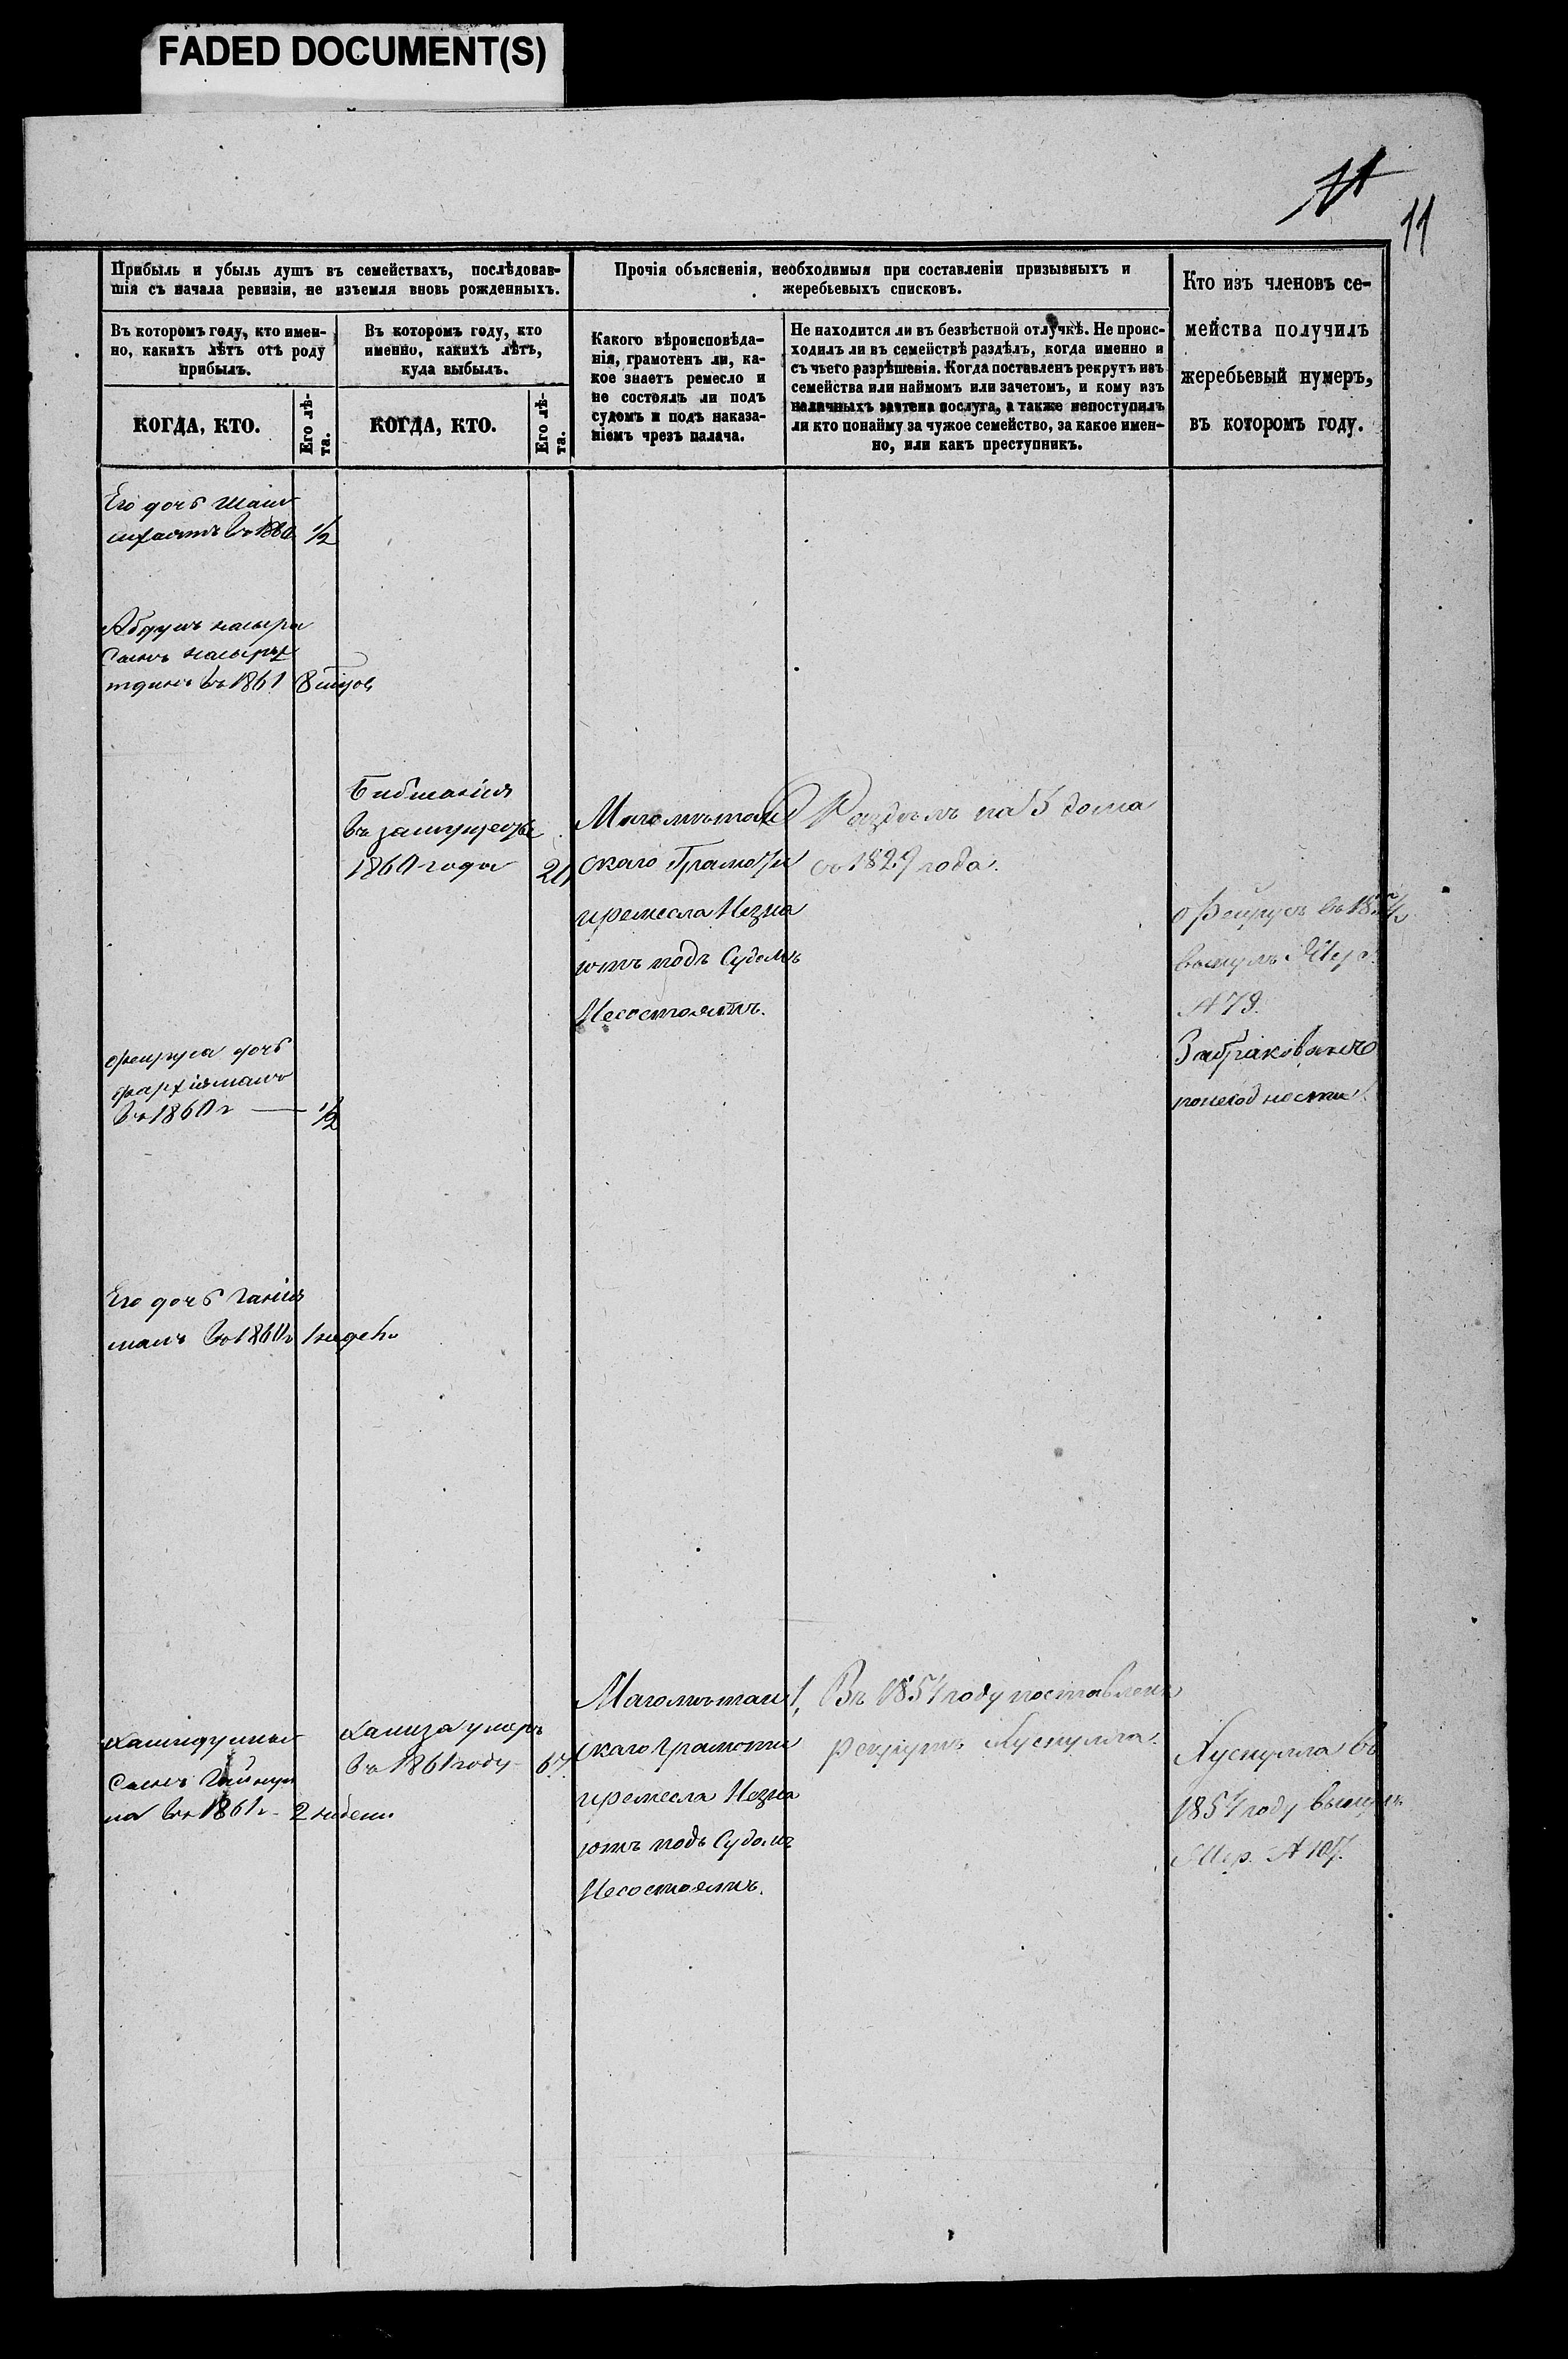 FADED DOCUMENT(S)
11
Прибыль и убыль душъ въ семействахъ, послѣдовав-
шія съ начала ревизіи, не изъемля вновь рожденныхъ.
Прочія объясненія, необходимыя при составленіи призывныхъ и
жеребьевыхъ списковъ.
Кто изъ членовъ се-
мейства получилъ
жеребьевый нумеръ,
въ которомъ году.
Въ которомъ году, кто имен-
но, какихъ лѣтъ отъ роду
прибылъ.
Въ которомъ году, кто
именно, какихъ лѣтъ,
куда выбылъ.
Какого вѣроисповѣда-
нія, грамотенъ ли, ка-
кое знаетъ ремесло и
не состоялъ ли подъ
судомъ и подъ наказа-
ніемъ чрезъ палача.
Не находится ли въ безвѣстной отлучкѣ. Не проис-
ходилъ ли въ семействѣ раздѣлъ, когда именно и
съ чьего разрѣшенія. Когда поставленъ рекрутъ изъ
семейства или наймомъ или зачетомъ, и кому изъ
наличныхъ зачтена послуга, а также непоступилъ
ли кто понайму за чужое семейство, за какое имен-
но, или какъ преступникъ.
КОГДА, КТО.
Его лѣ-
та.
КОГДА, КТО.
Его лѣ-
та.
Его дочь
въ 1860 1/2
сынъ
въ 1861
въ замужество
1860 года 20
Магометан
скаго Грамоти
иремесла Незна
ютъ подъ Судомъ
Несостоятъ.
Раздѣлъ на 5 дома
въ 1829 года.
вынулъ
79.
Забракованъ
понегодности.
дочь
въ 1860 г 1/2
Его дочь
въ 1860 г
сынъ
на въ 1861 г. 2 недели
Хамза умеръ
въ 1861 году 67.
Магометан
скаго Грамоти
иремесла Незна
ютъ подъ Судомъ
Несостоятъ.
1, Въ 1854 году поставленъ
рекрутъ Хуснулла.
Хуснулла въ
1854 году вынулъ
107.